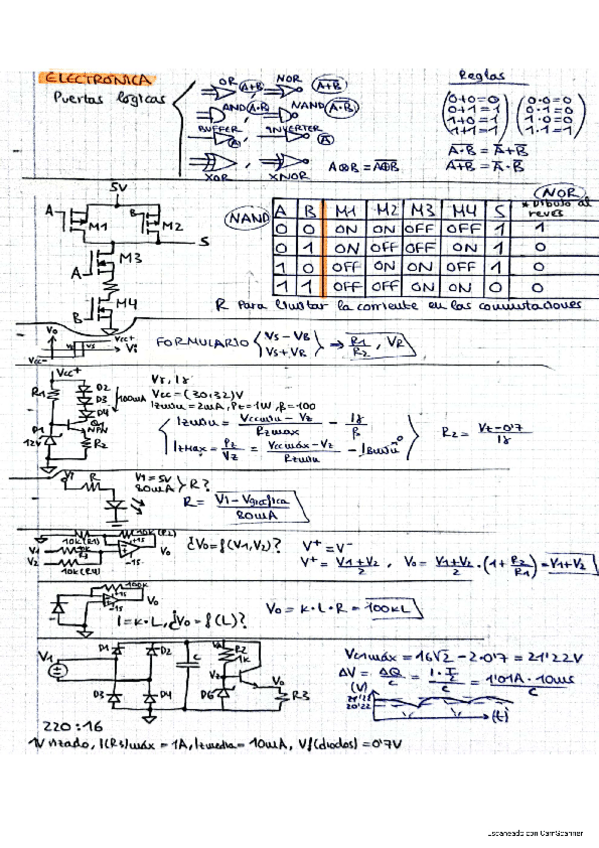 ELECTRONICA
Puertas lógicas
OR A+B , NOR A+B
AND A·B , NAND A·B
BUFFER A , INVERTER A
XOR , XNOR
A⊗B = A⊕B
Reglas
0+0=0 0·0=0
0+1=1 0·1=0
1+0=1 1·0=0
1+1=1 1·1=1
A·B = A+B
A+B = A·B
5V
A M1 B M2
S
A M3
B M4
NAND
NOR
A B M1 M2 M3 M4 S * Dibujo al reves
0 0 ON ON OFF OFF 1 1
0 1 ON OFF OFF ON 1 0
1 0 OFF ON ON OFF 1 0
1 1 OFF OFF ON ON 0 0
R para limitar la corriente en las conmutaciones
Vo Vcc+ Vi Vcc-
FORMULARIO Vs-VB
Vs+VR
→ R1/R2, VR
Vcc+
R1 D2 D3 D4 100mA
D1 12V NPN R2
Vcc = (30,32)V
Izmin = 2mA, Pz = 1W, β = 100
Izmin = Vccmin - Vz / Rzmax - / β
Izmax = Pz / Vz = Vccmáx - Vz / Rzmin - IBmin
R2 = Vz - 0'7
Vi R
V1 = 5V
20mA
R?
R = V1 - Vgráfica / 20mA
10K(R1) 10K(R2)
V1 V2 R3 10K(R4)
+15 -15 Vo
¿Vo = f(V1,V2)?
V+ = V-
V+ = V1+V2 / 2 , Vo = V1+V2 / 2 · (1 + R2/R1) = V1+V2
100K
+15 -15 Vo
I = K·L, ¿Vo = f(L)?
Vo = K·L·R = 100KL
V1 D1 D2 D3 D4 C R2 1K Vz D6 Vo R3
Vc1máx = 16√2 - 2·0'7 = 21'22V
ΔV = ΔQ/C = I·T/2 / C = 1'01A·10ms / C
(V)
21'22
20'22
(t)
220:16
1V rizado, I(R3)máx = 1A, Izmedia = 10mA, Vf(diodos) = 0'7V
Escaneado con CamScanner